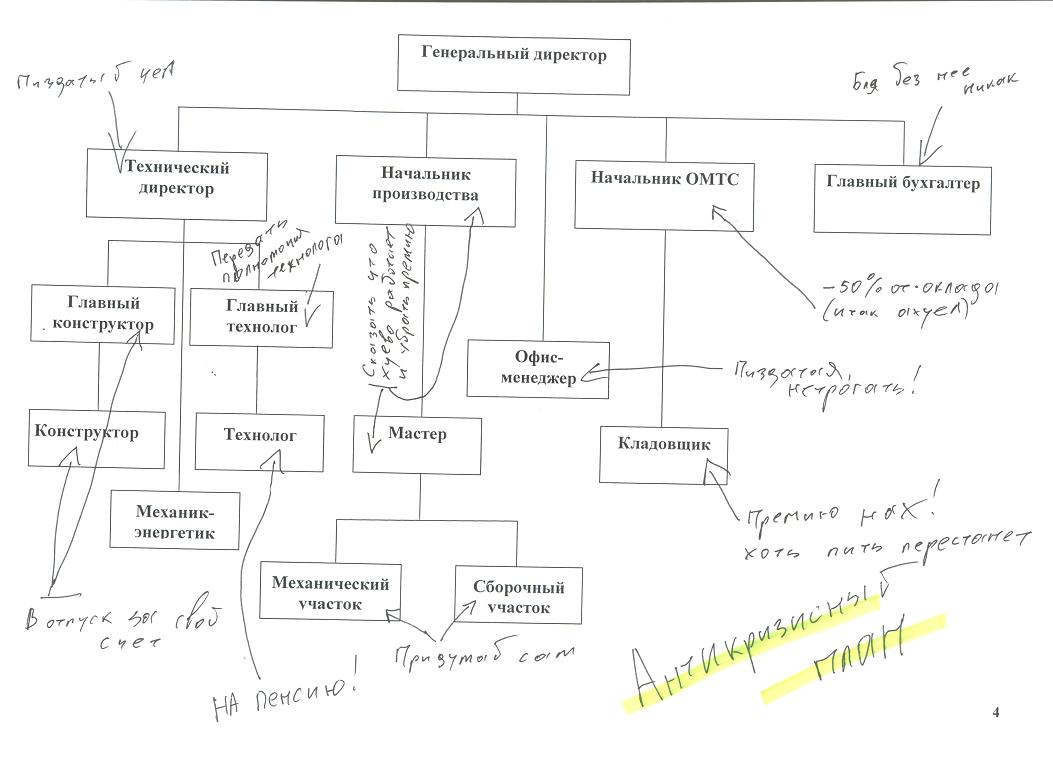 Генеральный директор
Пиздатый чел
Бля без нее
никак
Технический
директор
Начальник
производства
Начальник ОМТС
Главный бухгалтер
Передать
полномочия
технолога
Сказать что
хуево работает
и убрать премию
-50% от оклада
(итак охуел)
Главный
конструктор
Главный
технолог
Офис-
менеджер
Пиздатая,
нетрогать!
Конструктор
Технолог
Мастер
Кладовщик
Механик-
энергетик
Премию нах!
хоть пить перестанет
Механический
участок
Сборочный
участок
В отпуск за свой
счет
Придумай сам
НА ПЕНСИЮ!
Антикризисный
план
4